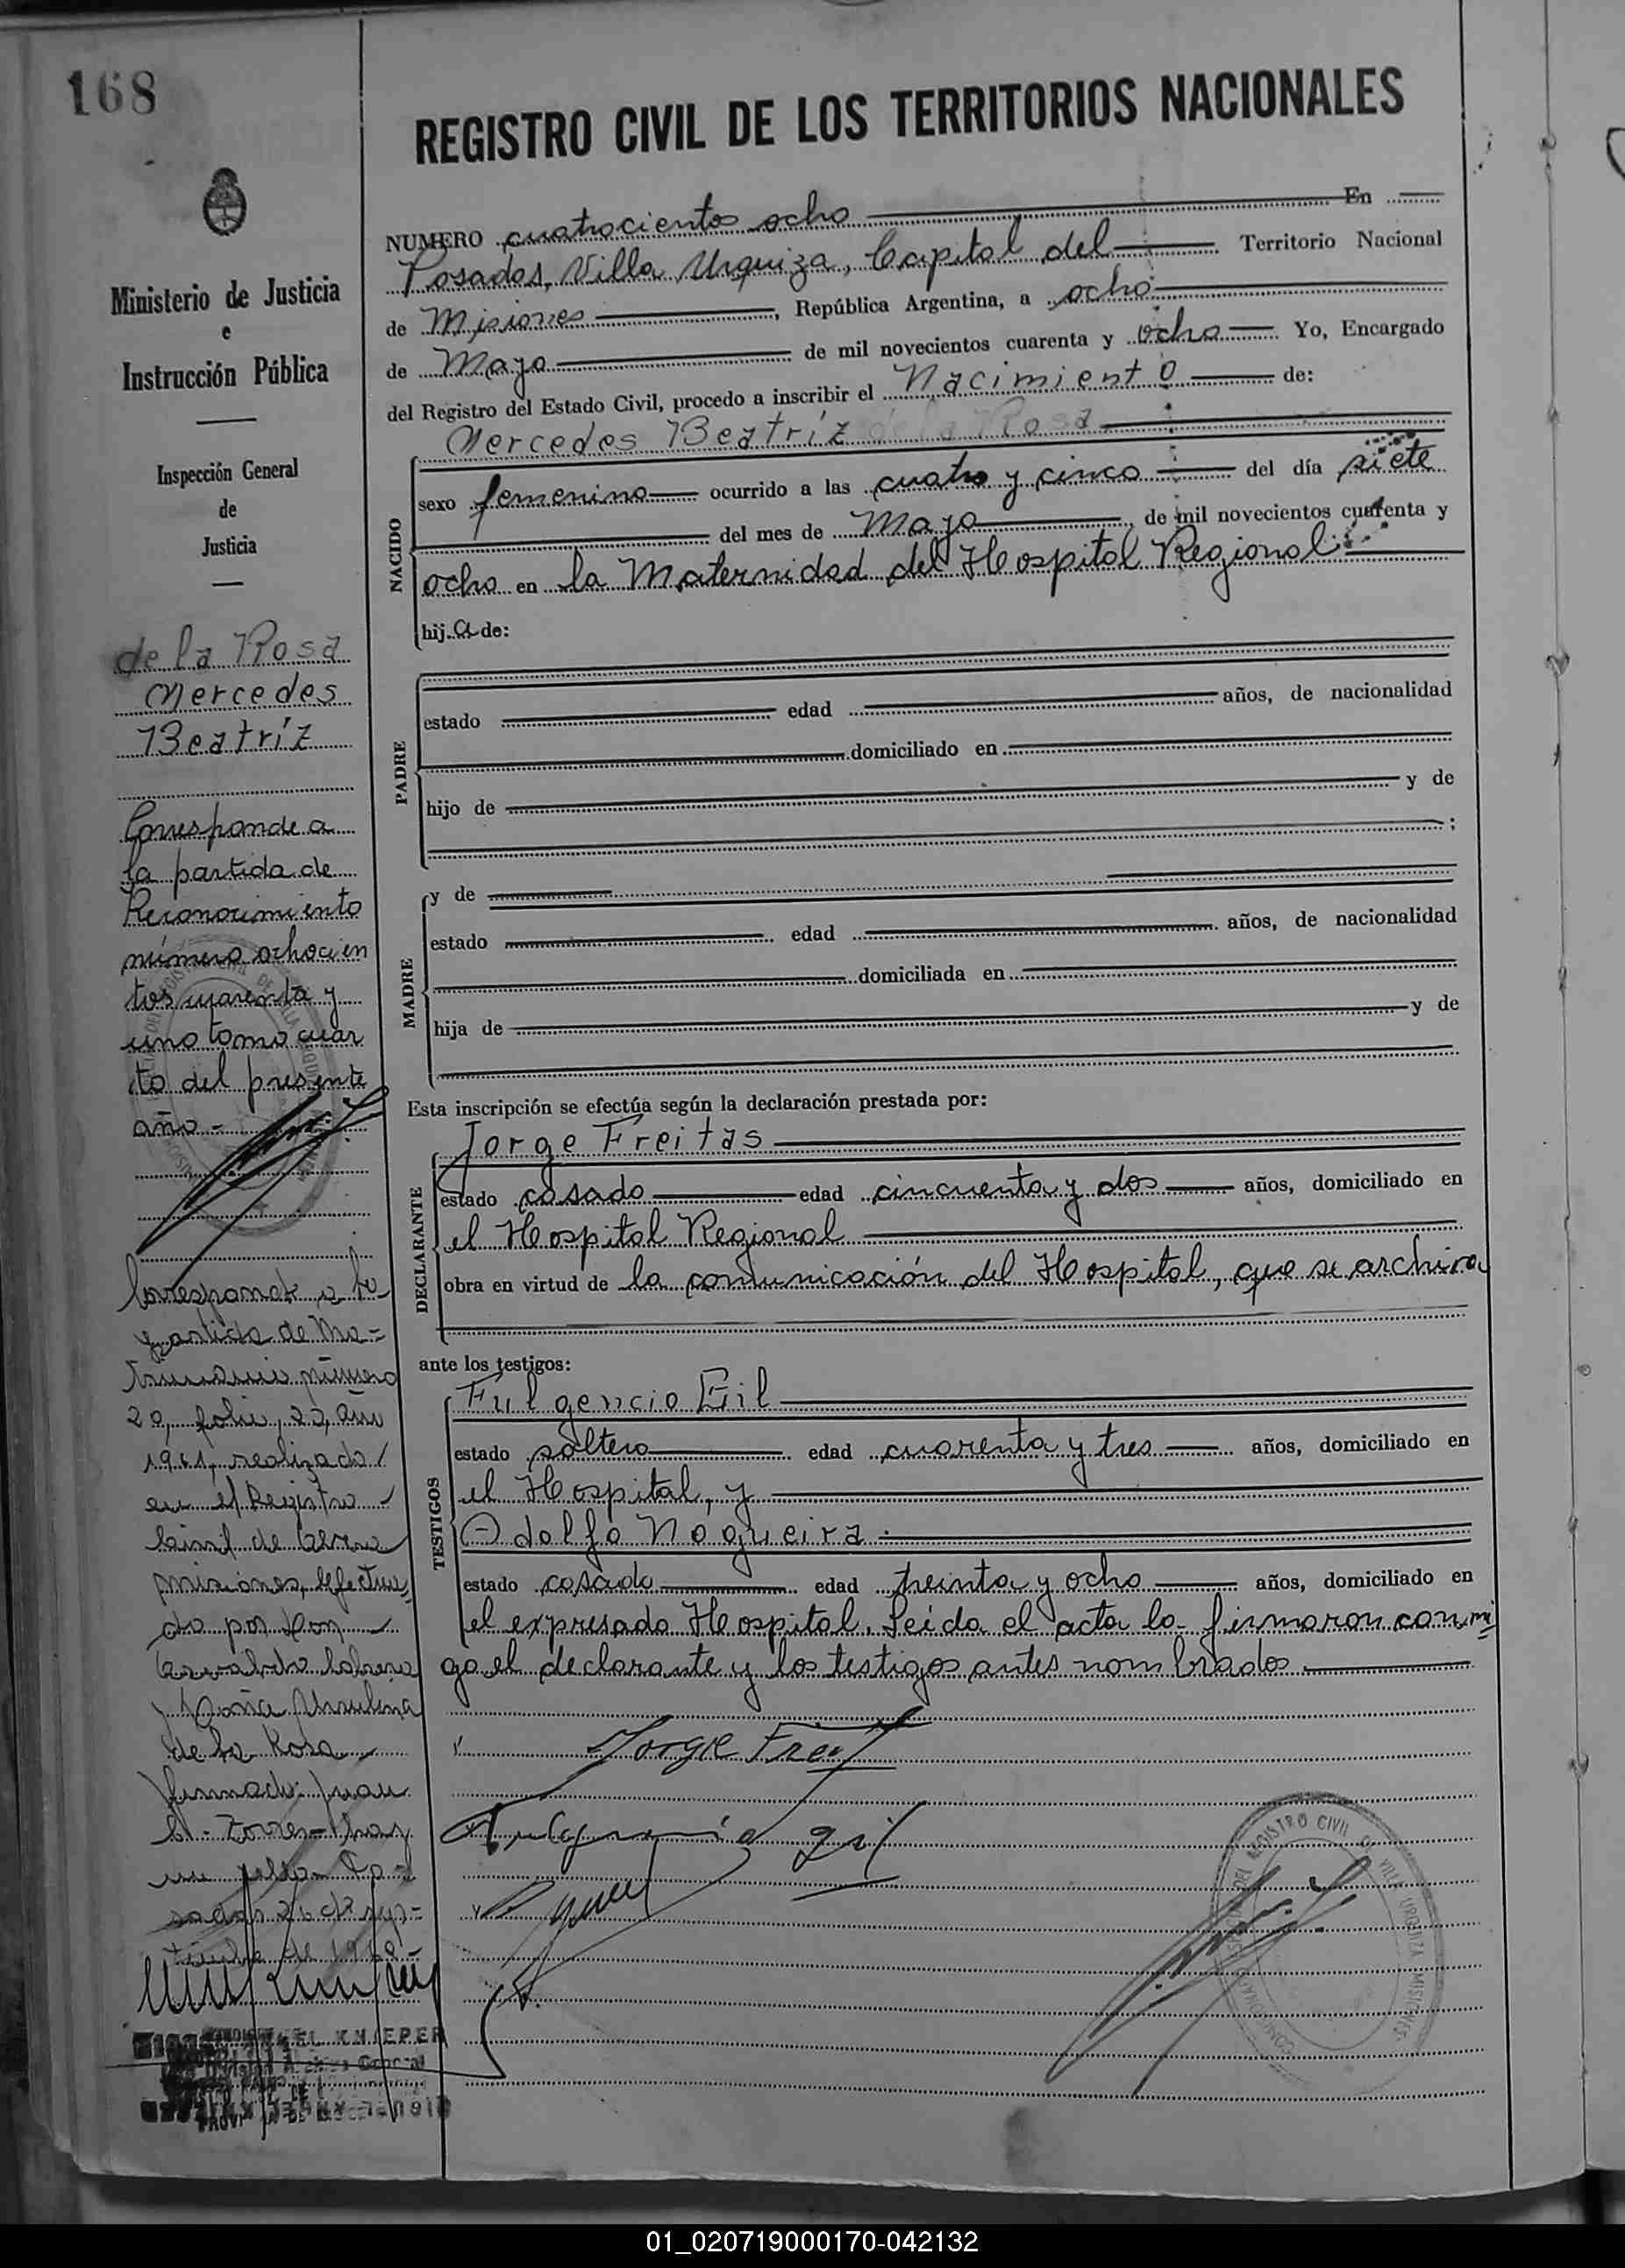 168
REGISTRO CIVIL DE LOS TERRITORIOS NACIONALES
Ministerio de Justicia
e
Instrucción Pública
Inspección General
de
Justicia
de la Rosa
Mercedes
Beatríz
Corresponde a
la partida de
Reconocimiento
número ochocien
tos cuarenta y
uno tomo cuar
to del presente
año -
Corresponde a la
partida de Ma=
trimonio número
20, folio, 22, año
1961, realizado
en el Registro
Civil de
Misiones, efectua
do por Don
Osvaldo Cabrera
y Doña
de la Rosa
firmado: Juan
Torres
de 196
NUMERO cuatrocientos ocho En
Posadas, Villa Urquiza, Capital del Territorio Nacional
de Misiones, República Argentina, a ocho
de Mayo de mil novecientos cuarenta y ocho Yo, Encargado
del Registro del Estado Civil, procedo a inscribir el Nacimiento de:
Mercedes Beatríz de la Rosa
NACIDO
sexo femenino ocurrido a las cuatro y cinco del día siete
del mes de Mayo, de mil novecientos cuarenta y
ocho en la Maternidad del Hospital Regional
hija de:
PADRE
estado edad años, de nacionalidad
domiciliado en
hijo de y de
;
MADRE
y de
estado edad años, de nacionalidad
domiciliada en
hija de y de
Esta inscripción se efectúa según la declaración prestada por:
DECLARANTE
Jorge Freitas
estado casado edad cincuenta y dos años, domiciliado en
el Hospital Regional
obra en virtud de la comunicación del Hospital, que se archiva
ante los testigos:
TESTIGOS
Fulgencio Gil
estado soltero edad cuarenta y tres años, domiciliado en
el Hospital, y
Adolfo Nogueira
estado casado edad treinta y ocho años, domiciliado en
el expresado Hospital. Leida el acta la firmaron conmi
go el declarante y los testigos antes nombrados.
Jorge Freit
Fulgencio gil
REGISTRO CIVIL DE VILLA URQUIZA MISIONES
01_020719000170-042132